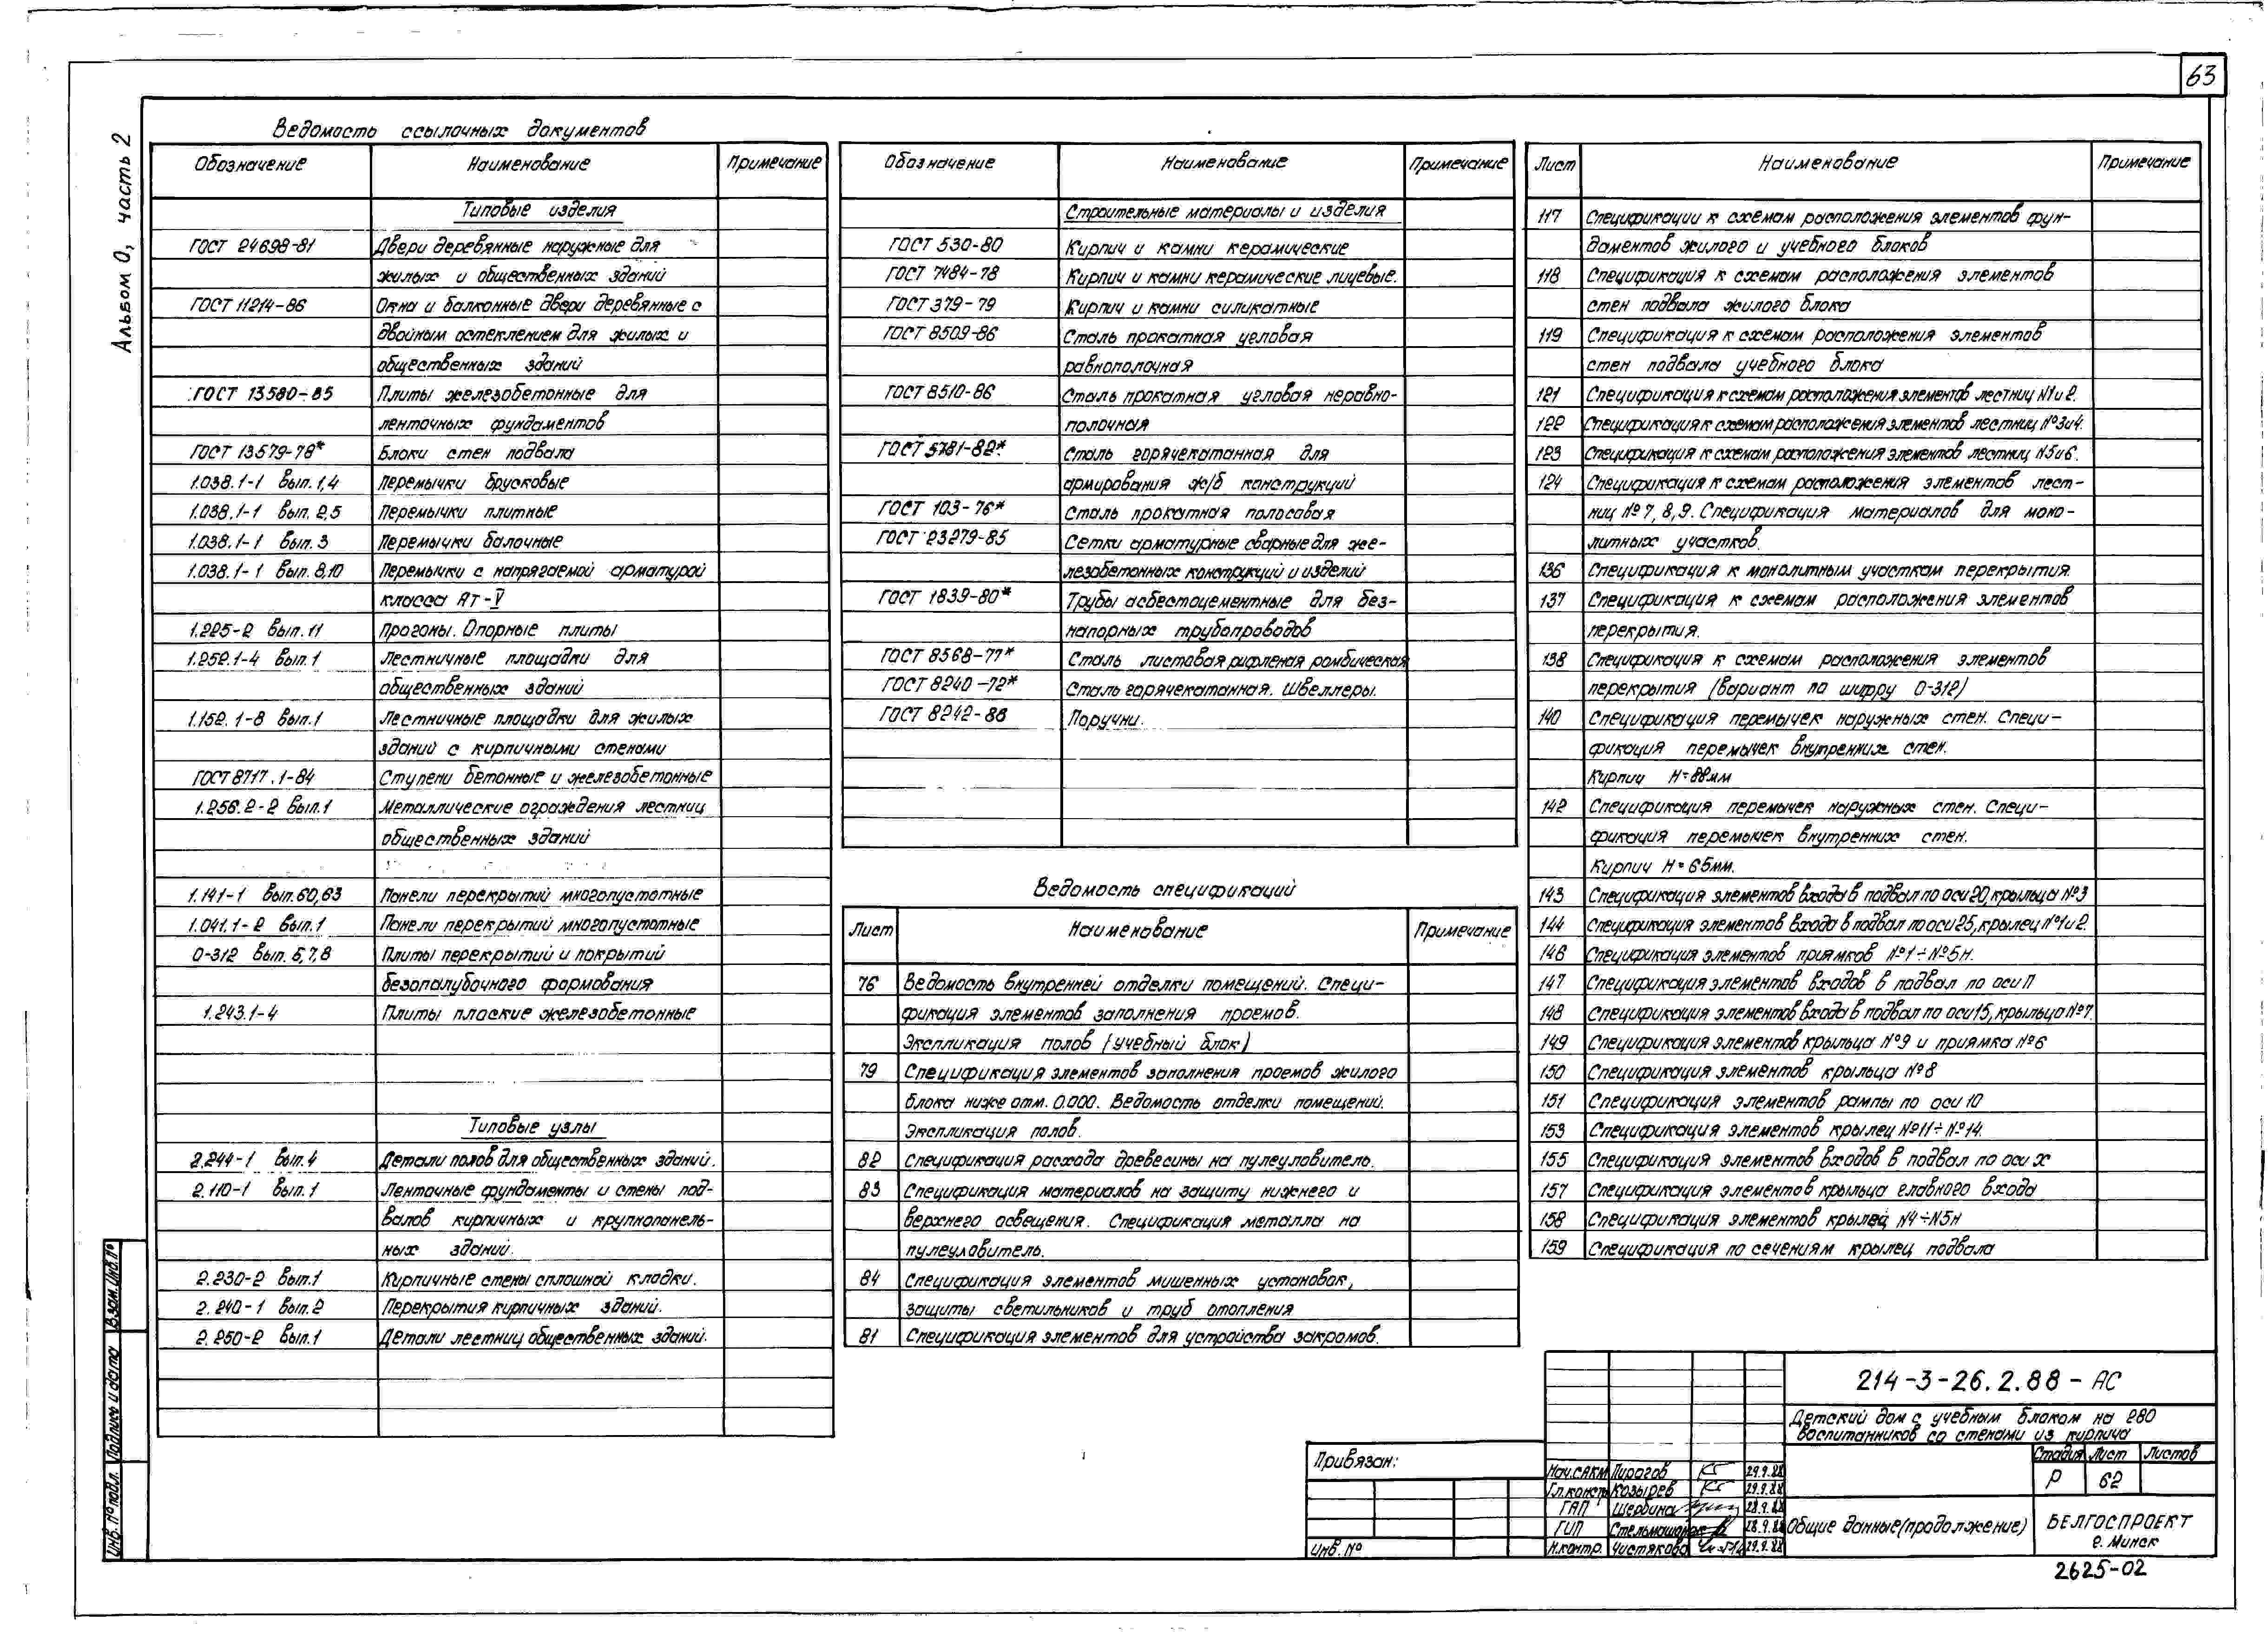 63
Альбом 0, часть 2
Ведомость ссылочных документов
Обозначение Наименование Примечание
Типовые изделия
ГОСТ 24698-81 Двери деревянные наружные для
жилых и общественных зданий
ГОСТ 11214-86 Окна и балконные двери деревянные с
двойным остеклением для жилых и
общественных зданий
ГОСТ 13580-85 Плиты железобетонные для
ленточных фундаментов
ГОСТ 13579-78* Блоки стен подвала
1.038.1-1 вып. 1,4 Перемычки брусковые
1.038.1-1 вып. 2,5 Перемычки плитные
1.038.1-1 вып. 3 Перемычки балочные
1.038.1-1 вып. 8,10 Перемычки с напрягаемой арматурой
класса Ат-V
1.225-2 вып. 11 Прогоны. Опорные плиты
1.252.1-4 вып. 1 Лестничные площадки для
общественных зданий
1.152.1-8 вып. 1 Лестничные площадки для жилых
зданий с кирпичными стенами
ГОСТ 8717.1-84 Ступени бетонные и железобетонные
1.256.2-2 вып. 1 Металлические ограждения лестниц
общественных зданий
1.141-1 вып. 60,63 Панели перекрытий многопустотные
1.041.1-2 вып. 1 Панели перекрытий многопустотные
0-312 вып. 5,7,8 Плиты перекрытий и покрытий
безопалубочного формования
1.243.1-4 Плиты плоские железобетонные
Типовые узлы
2.244-1 вып. 4 Детали полов для общественных зданий.
2.110-1 вып. 1 Ленточные фундаменты и стены под-
валов кирпичных и крупнопанель-
ных зданий.
2.230-2 вып. 1 Кирпичные стены сплошной кладки.
2.240-1 вып. 2 Перекрытия кирпичных зданий.
2.250-2 вып. 1 Детали лестниц общественных зданий.
Обозначение Наименование Примечание
Строительные материалы и изделия
ГОСТ 530-80 Кирпич и камни керамические
ГОСТ 7484-78 Кирпич и камни керамические лицевые.
ГОСТ 379-79 Кирпич и камни силикатные
ГОСТ 8509-86 Сталь прокатная угловая
равнополочная
ГОСТ 8510-86 Сталь прокатная угловая неравно-
полочная
ГОСТ 5781-82* Сталь горячекатанная для
армирования ж/б конструкций
ГОСТ 103-76* Сталь прокатная полосовая
ГОСТ 23279-85 Сетки арматурные сварные для же-
лезобетонных конструкций и изделий
ГОСТ 1839-80* Трубы асбестоцементные для без-
напорных трубопроводов
ГОСТ 8568-77* Сталь листовая рифленая ромбическая
ГОСТ 8240-72* Сталь горячекатанная. Швеллеры.
ГОСТ 8242-88 Поручни.
Ведомость спецификаций
Лист Наименование Примечание
76 Ведомость внутренней отделки помещений. Специ-
фикация элементов заполнения проемов.
Экспликация полов (учебный блок)
79 Спецификация элементов заполнения проемов жилого
блока ниже отм. 0.000. Ведомость отделки помещений.
Экспликация полов.
82 Спецификация расхода древесины на пулеуловитель.
83 Спецификация материалов на защиту нижнего и
верхнего освещения. Спецификация металла на
пулеуловитель.
84 Спецификация элементов мишенных установок,
защиты светильников и труб отопления
81 Спецификация элементов для устройства закромов.
Лист Наименование Примечание
117 Спецификации к схемам расположения элементов фун-
даментов жилого и учебного блоков
118 Спецификация к схемам расположения элементов
стен подвала жилого блока
119 Спецификация к схемам расположения элементов
стен подвала учебного блока
121 Спецификация к схемам расположения элементов лестниц N1и2.
122 Спецификация к схемам расположения элементов лестниц №3и4.
123 Спецификация к схемам расположения элементов лестниц N5и6.
124 Спецификация к схемам расположения элементов лест-
ниц №7, 8, 9. Спецификация материалов для моно-
литных участков.
136 Спецификация к монолитным участкам перекрытия.
137 Спецификация к схемам расположения элементов
перекрытия.
138 Спецификация к схемам расположения элементов
перекрытия (вариант по шифру 0-312)
140 Спецификация перемычек наружных стен. Специ-
фикация перемычек внутренних стен.
Кирпич H=88мм
142 Спецификация перемычек наружных стен. Специ-
фикация перемычек внутренних стен.
Кирпич H=65мм.
143 Спецификация элементов входа в подвал по оси 20, крыльца №3
144 Спецификация элементов входа в подвал по оси 25, крылец №1и2.
146 Спецификация элементов приямков №1÷№5н.
147 Спецификация элементов входов в подвал по оси П
148 Спецификация элементов входа в подвал по оси 15, крыльца №7.
149 Спецификация элементов крыльца №9 и приямка №6
150 Спецификация элементов крыльца №8
151 Спецификация элементов рампы по оси 10
153 Спецификация элементов крылец №11÷№14.
155 Спецификация элементов входов в подвал по оси х
157 Спецификация элементов крыльца главного входа
158 Спецификация элементов крылец N4÷N5н
159 Спецификация по сечениям крылец подвала
214-3-26.2.88-АС
Детский дом с учебным блоком на 280
воспитанников со стенами из кирпича
Стадия Лист Листов
Р 62
Привязан:
Инв. №
Нач.САКМ Пирогов 29.9.88
Гл.констр Козырев 29.9.88
ГАП Щербина 28.9.88
ГИП 28.9.88
Н.контр. Чистякова 29.9.88
Общие данные (продолжение)
БЕЛГОСПРОЕКТ
г. Минск
2625-02
Инв. № подл. Подпись и дата Взам. Инв. №